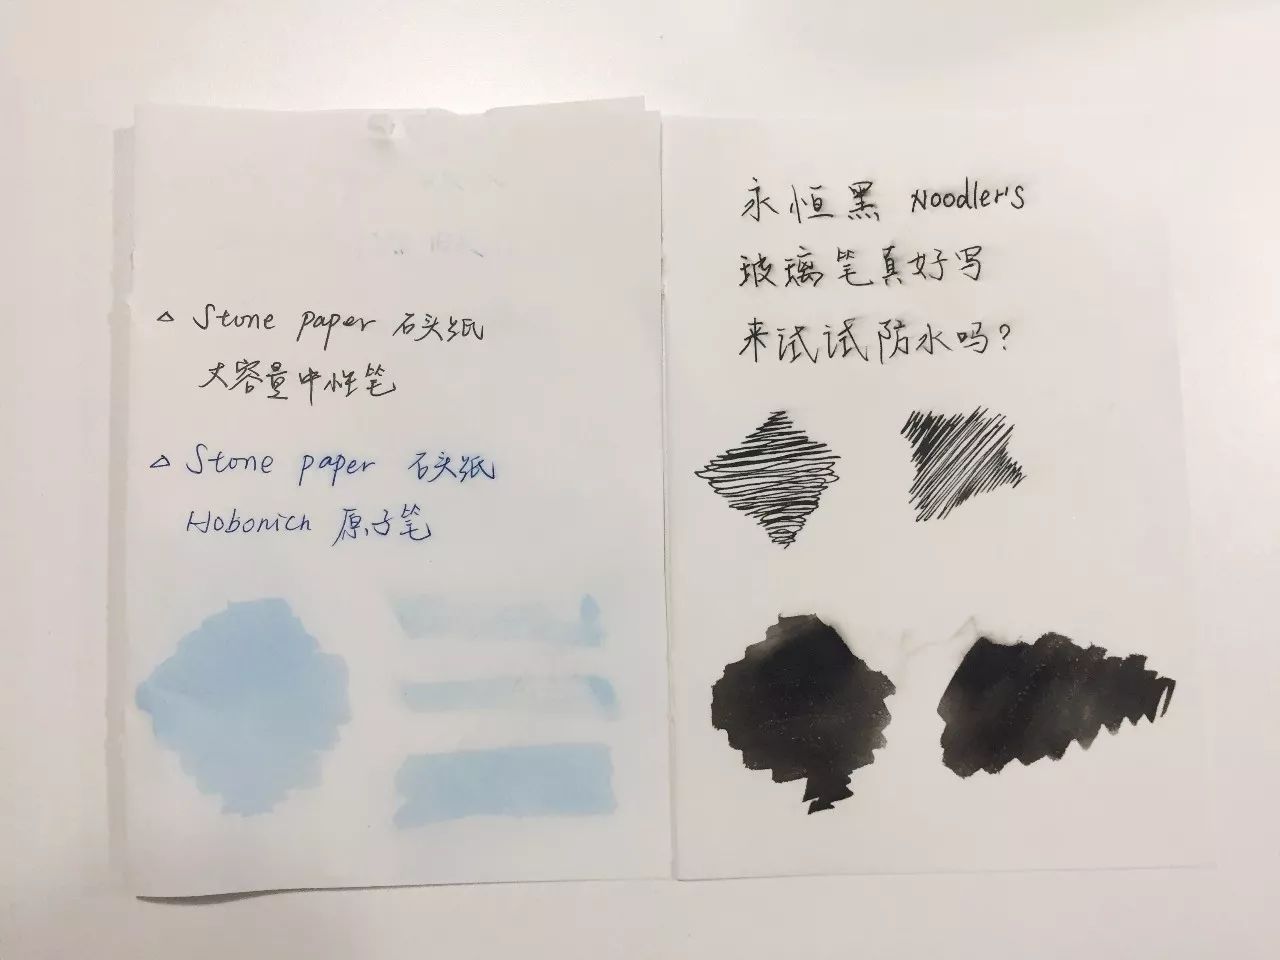 △ Stone paper 石头纸
大容量中性笔
△ Stone paper 石头纸
Hobonich 原子笔
永恒黑 Noodler's
玻璃笔真好写
来试试防水吗?